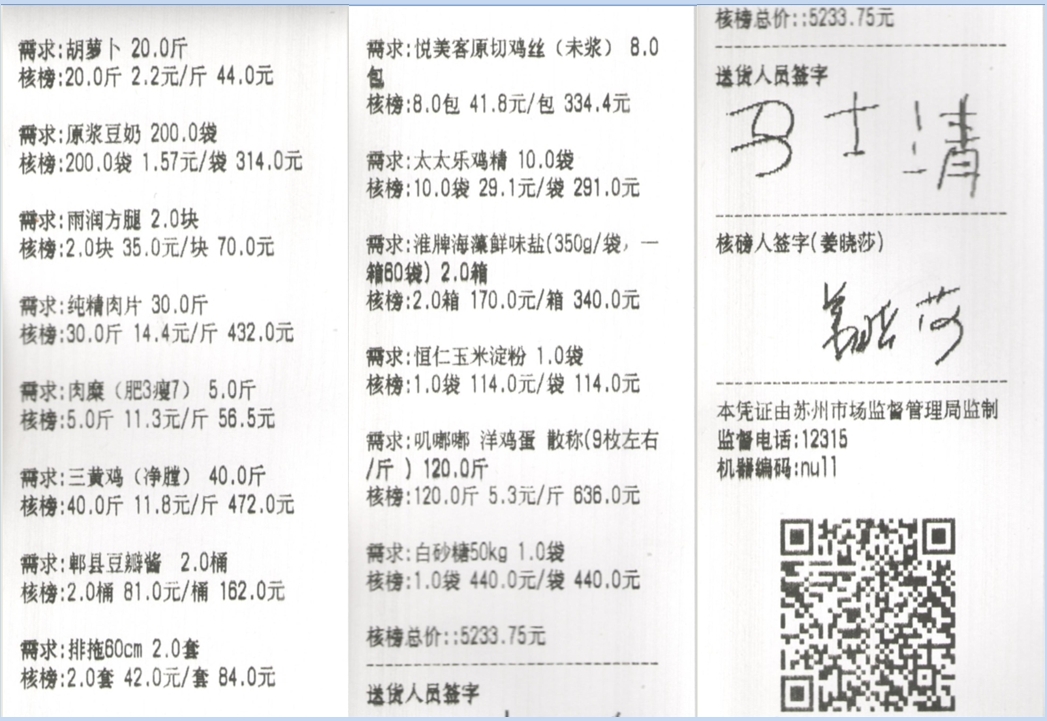 需求:胡萝卜 20.0斤
核榜:20.0斤 2.2元/斤 44.0元
需求:原浆豆奶 200.0袋
核榜:200.0袋 1.57元/袋 314.0元
需求:雨润方腿 2.0块
核榜:2.0块 35.0元/块 70.0元
需求:纯精肉片 30.0斤
核榜:30.0斤 14.4元/斤 432.0元
需求:肉糜（肥3瘦7） 5.0斤
核榜:5.0斤 11.3元/斤 56.5元
需求:三黄鸡（净膛） 40.0斤
核榜:40.0斤 11.8元/斤 472.0元
需求:郫县豆瓣酱 2.0桶
核榜:2.0桶 81.0元/桶 162.0元
需求:排拖60cm 2.0套
核榜:2.0套 42.0元/套 84.0元
需求:悦美客原切鸡丝（未浆） 8.0
包
核榜:8.0包 41.8元/包 334.4元
需求:太太乐鸡精 10.0袋
核榜:10.0袋 29.1元/袋 291.0元
需求:淮牌海藻鲜味盐(350g/袋，一
箱60袋) 2.0箱
核榜:2.0箱 170.0元/箱 340.0元
需求:恒仁玉米淀粉 1.0袋
核榜:1.0袋 114.0元/袋 114.0元
需求:叽嘟嘟 洋鸡蛋 散称(9枚左右
/斤 ) 120.0斤
核榜:120.0斤 5.3元/斤 636.0元
需求:白砂糖50kg 1.0袋
核榜:1.0袋 440.0元/袋 440.0元
核榜总价::5233.75元
送货人员签字
核榜总价::5233.75元
送货人员签字
马士清
核磅人签字(姜晓莎)
姜晓莎
本凭证由苏州市场监督管理局监制
监督电话:12315
机器编码:null